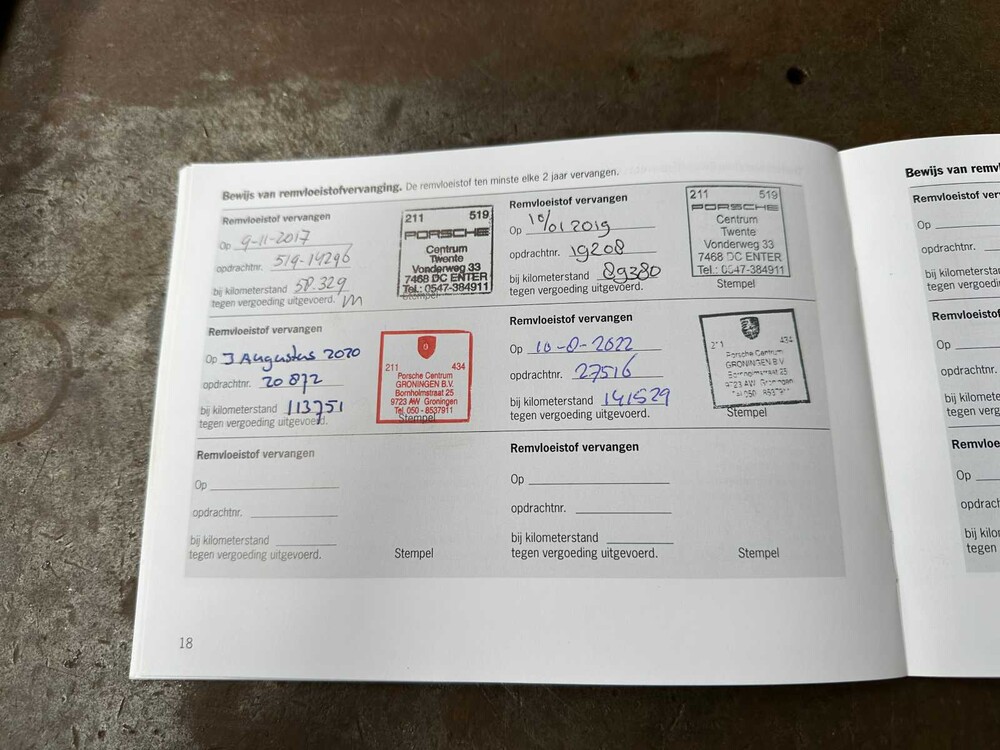 Bewijs van remvloeistofvervanging. De remvloeistof ten minste elke 2 jaar vervangen.
Remvloeistof vervangen
Op 9-11-2017
opdrachtnr. 519-14296
bij kilometerstand 58.329
tegen vergoeding uitgevoerd.
211 519
PORSCHE
Centrum
Twente
Vonderweg 33
7468 DC ENTER
Tel.: 0547-384911
Stempel
Remvloeistof vervangen
Op 10/01 2019
opdrachtnr. 19208
bij kilometerstand 89380
tegen vergoeding uitgevoerd.
211 519
PORSCHE
Centrum
Twente
Vonderweg 33
7468 DC ENTER
Tel.: 0547-384911
Stempel
Remvloeistof vervangen
Op 3 Augustus 2020
opdrachtnr. 20872
bij kilometerstand 113751
tegen vergoeding uitgevoerd.
211 434
Porsche Centrum
GRONINGEN B.V.
Bornholmstraat 25
9723 AW Groningen
Tel. 050 - 8537911
Stempel
Remvloeistof vervangen
Op 10-8-2022
opdrachtnr. 27516
bij kilometerstand 141529
tegen vergoeding uitgevoerd.
211 434
Porsche Centrum
GRONINGEN B.V.
Bornholmstraat 25
9723 AW Groningen
Tel. 050 - 8537911
Stempel
Remvloeistof vervangen
Op
opdrachtnr.
bij kilometerstand
tegen vergoeding uitgevoerd.
Stempel
Remvloeistof vervangen
Op
opdrachtnr.
bij kilometerstand
tegen vergoeding uitgevoerd.
Stempel
18
Bewijs van
Op
opdrachtnr.
Op
Op